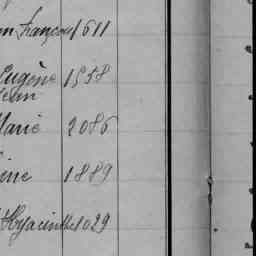 François 1611
Eugène 1538
Jean
Marie 2086
1889
Hyacinthe 1029